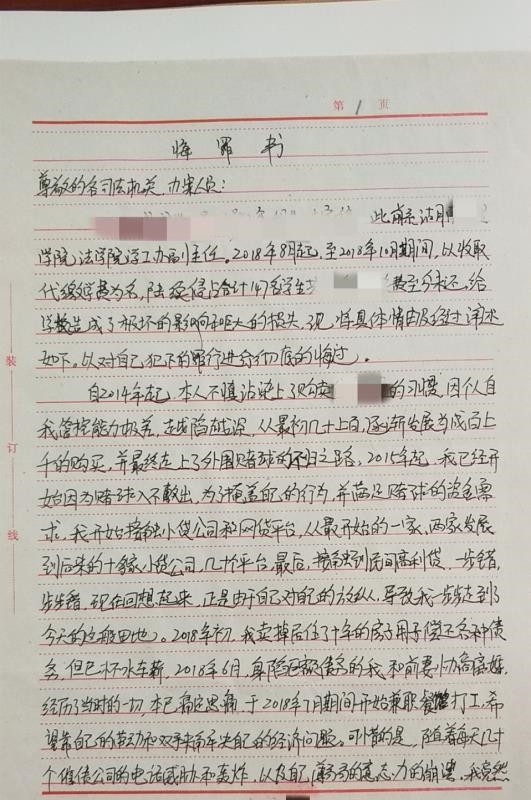 第 1 页
悔罪书
尊敬的各司法机关、办案人员：
此前系沽月
学院法学院学工办副主任。2018年8月起，至2018年10月期间，以收取
代缴学费为名，陆续侵占合计147名学生 费至今未还，给
学校造成了极坏的影响和巨大的损失，现将具体情由及经过详述
如下。以对自己犯下的罪行进行彻底的悔过。
自2014年起，本人不慎沾染上了购买 的习惯，因个人自
我管控能力极差，越陷越深，从最初几十上百，逐渐发展当成百上
千的购买，并最终走上了外围赌球的不归之路。2015年起，我已经开
始因为赌球入不敷出，为了掩盖自己的行为，并满足赌球的资金需
求。我开始接触小贷公司和网贷平台，从最开始的一家、两家发展
到后来的十余家小贷公司，几十个平台，最后，接触到民间高利贷，一步错，
步步错，现在回想起来，正是由于自己对自己的放纵，导致我一步步走到了
今天的这般田地。2018年初，我卖掉居住了十年的房子用于偿还各种债
务，但已杯水车薪，2018年6月，身陷巨额债务的我，和前妻协商离婚，
经历了当时的一切，本已痛定思痛，于2018年7月期间开始兼职 打工，希
望靠自己的劳动和双手来解决自己的经济问题。可惜的是，随着每天几十
个催债公司的电话威胁和轰炸，以及自己 的意志力的崩溃，我竟然
装
订
线